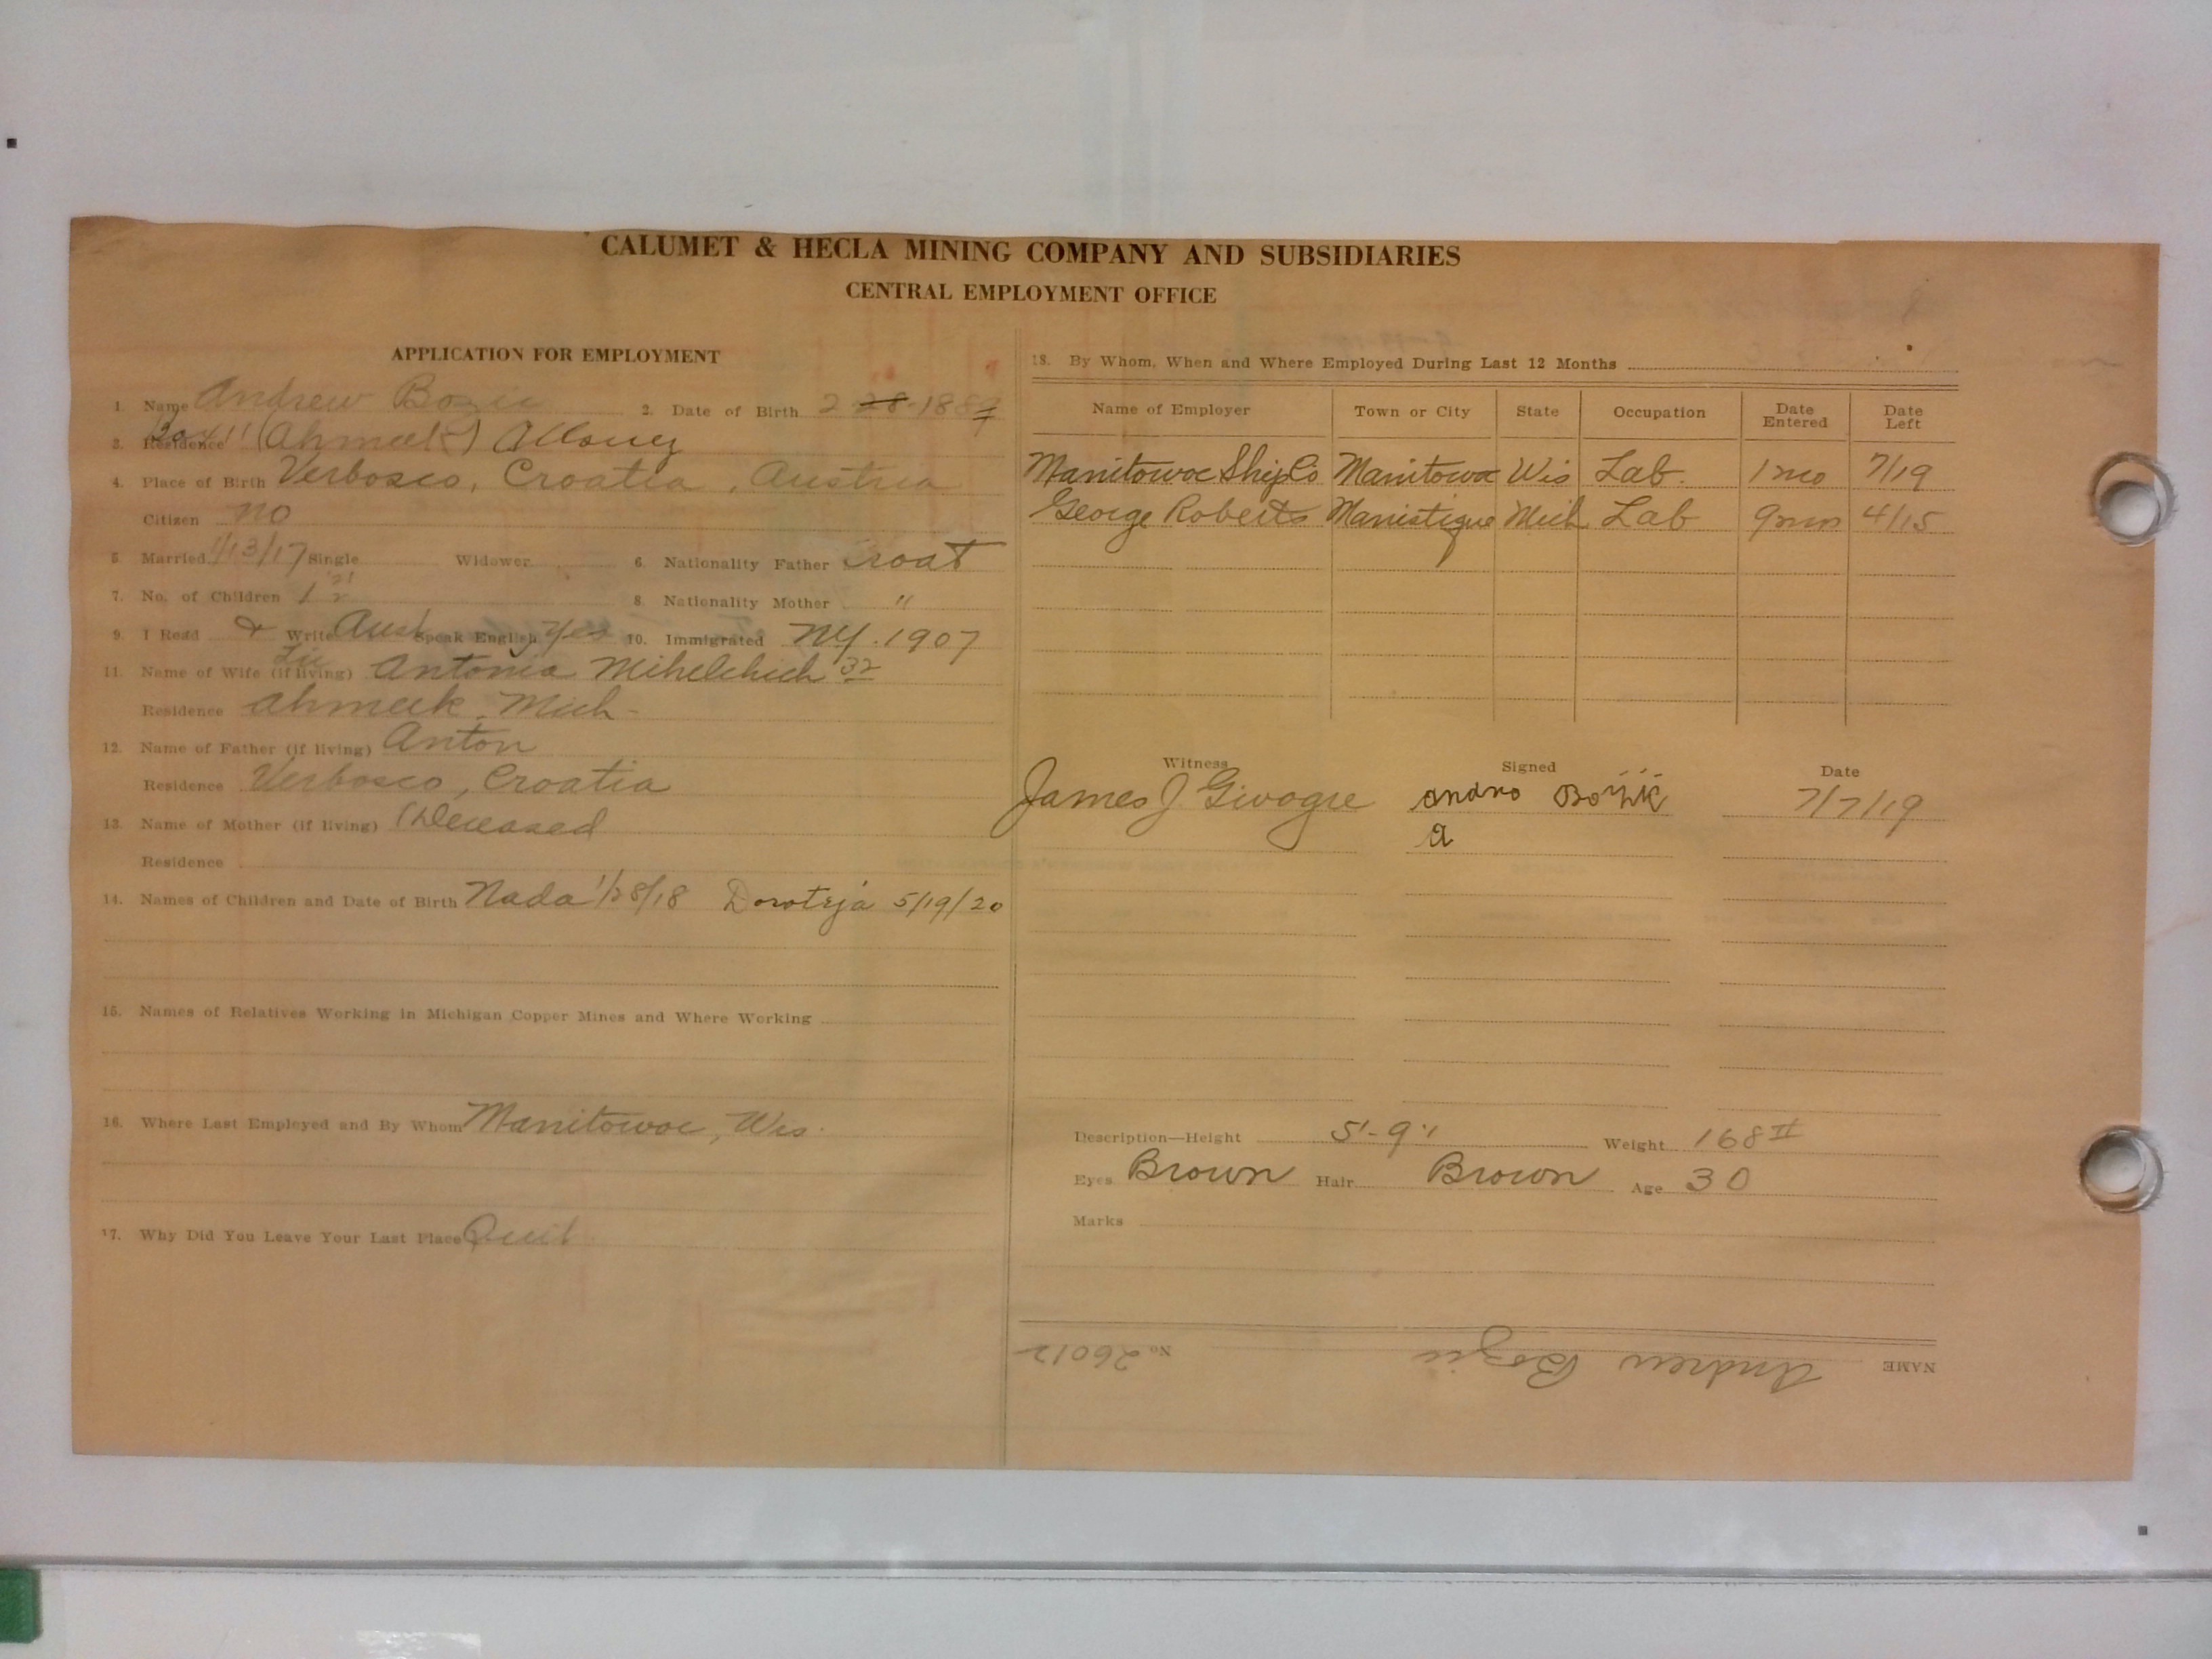 CALUMET & HECLA MINING COMPANY AND SUBSIDIARIES
CENTRAL EMPLOYMENT OFFICE
APPLICATION FOR EMPLOYMENT
1. Name Andrew Bozic 2. Date of Birth 2 28-188
3. Residence (Ahmeek) Allouez
4. Place of Birth Verbosco, Croatia, Austria
Citizen no
5 Married 1/13/17 Single Widower 6. Nationality Father Croat
7. No. of Children 8 Nationality Mother "
9. I Read & Write Aust Speak English Yes 10. Immigrated NY. 1907
11. Name of Wife (if living) Antonia Mihelchich 32
Residence Ahmeek, Mich-
12. Name of Father (if living) Anton
Residence Verbosco, Croatia
13. Name of Mother (if living) (Deceased
Residence
14. Names of Children and Date of Birth Nada 1/28/18 Doroteja 5/19/20
15. Names of Relatives Working in Michigan Copper Mines and Where Working
16. Where Last Employed and By Whom Manitowoc, Wis.
17. Why Did You Leave Your Last Place Quit
18. By Whom, When and Where Employed During Last 12 Months
Name of Employer Town or City State Occupation Date Entered Date Left
Manitowoc Ship Co Manitowoc Wis Lab. 1 mo 7/19
George Roberts Manistique Mich Lab 9 mon 4/15
Witness Signed Date
James J. andro 7/7/19
a
Description—Height 5'-9" Weight 168
Eyes Brown Hair Brown Age 30
Marks
NAME Andrew Bozic No 26012